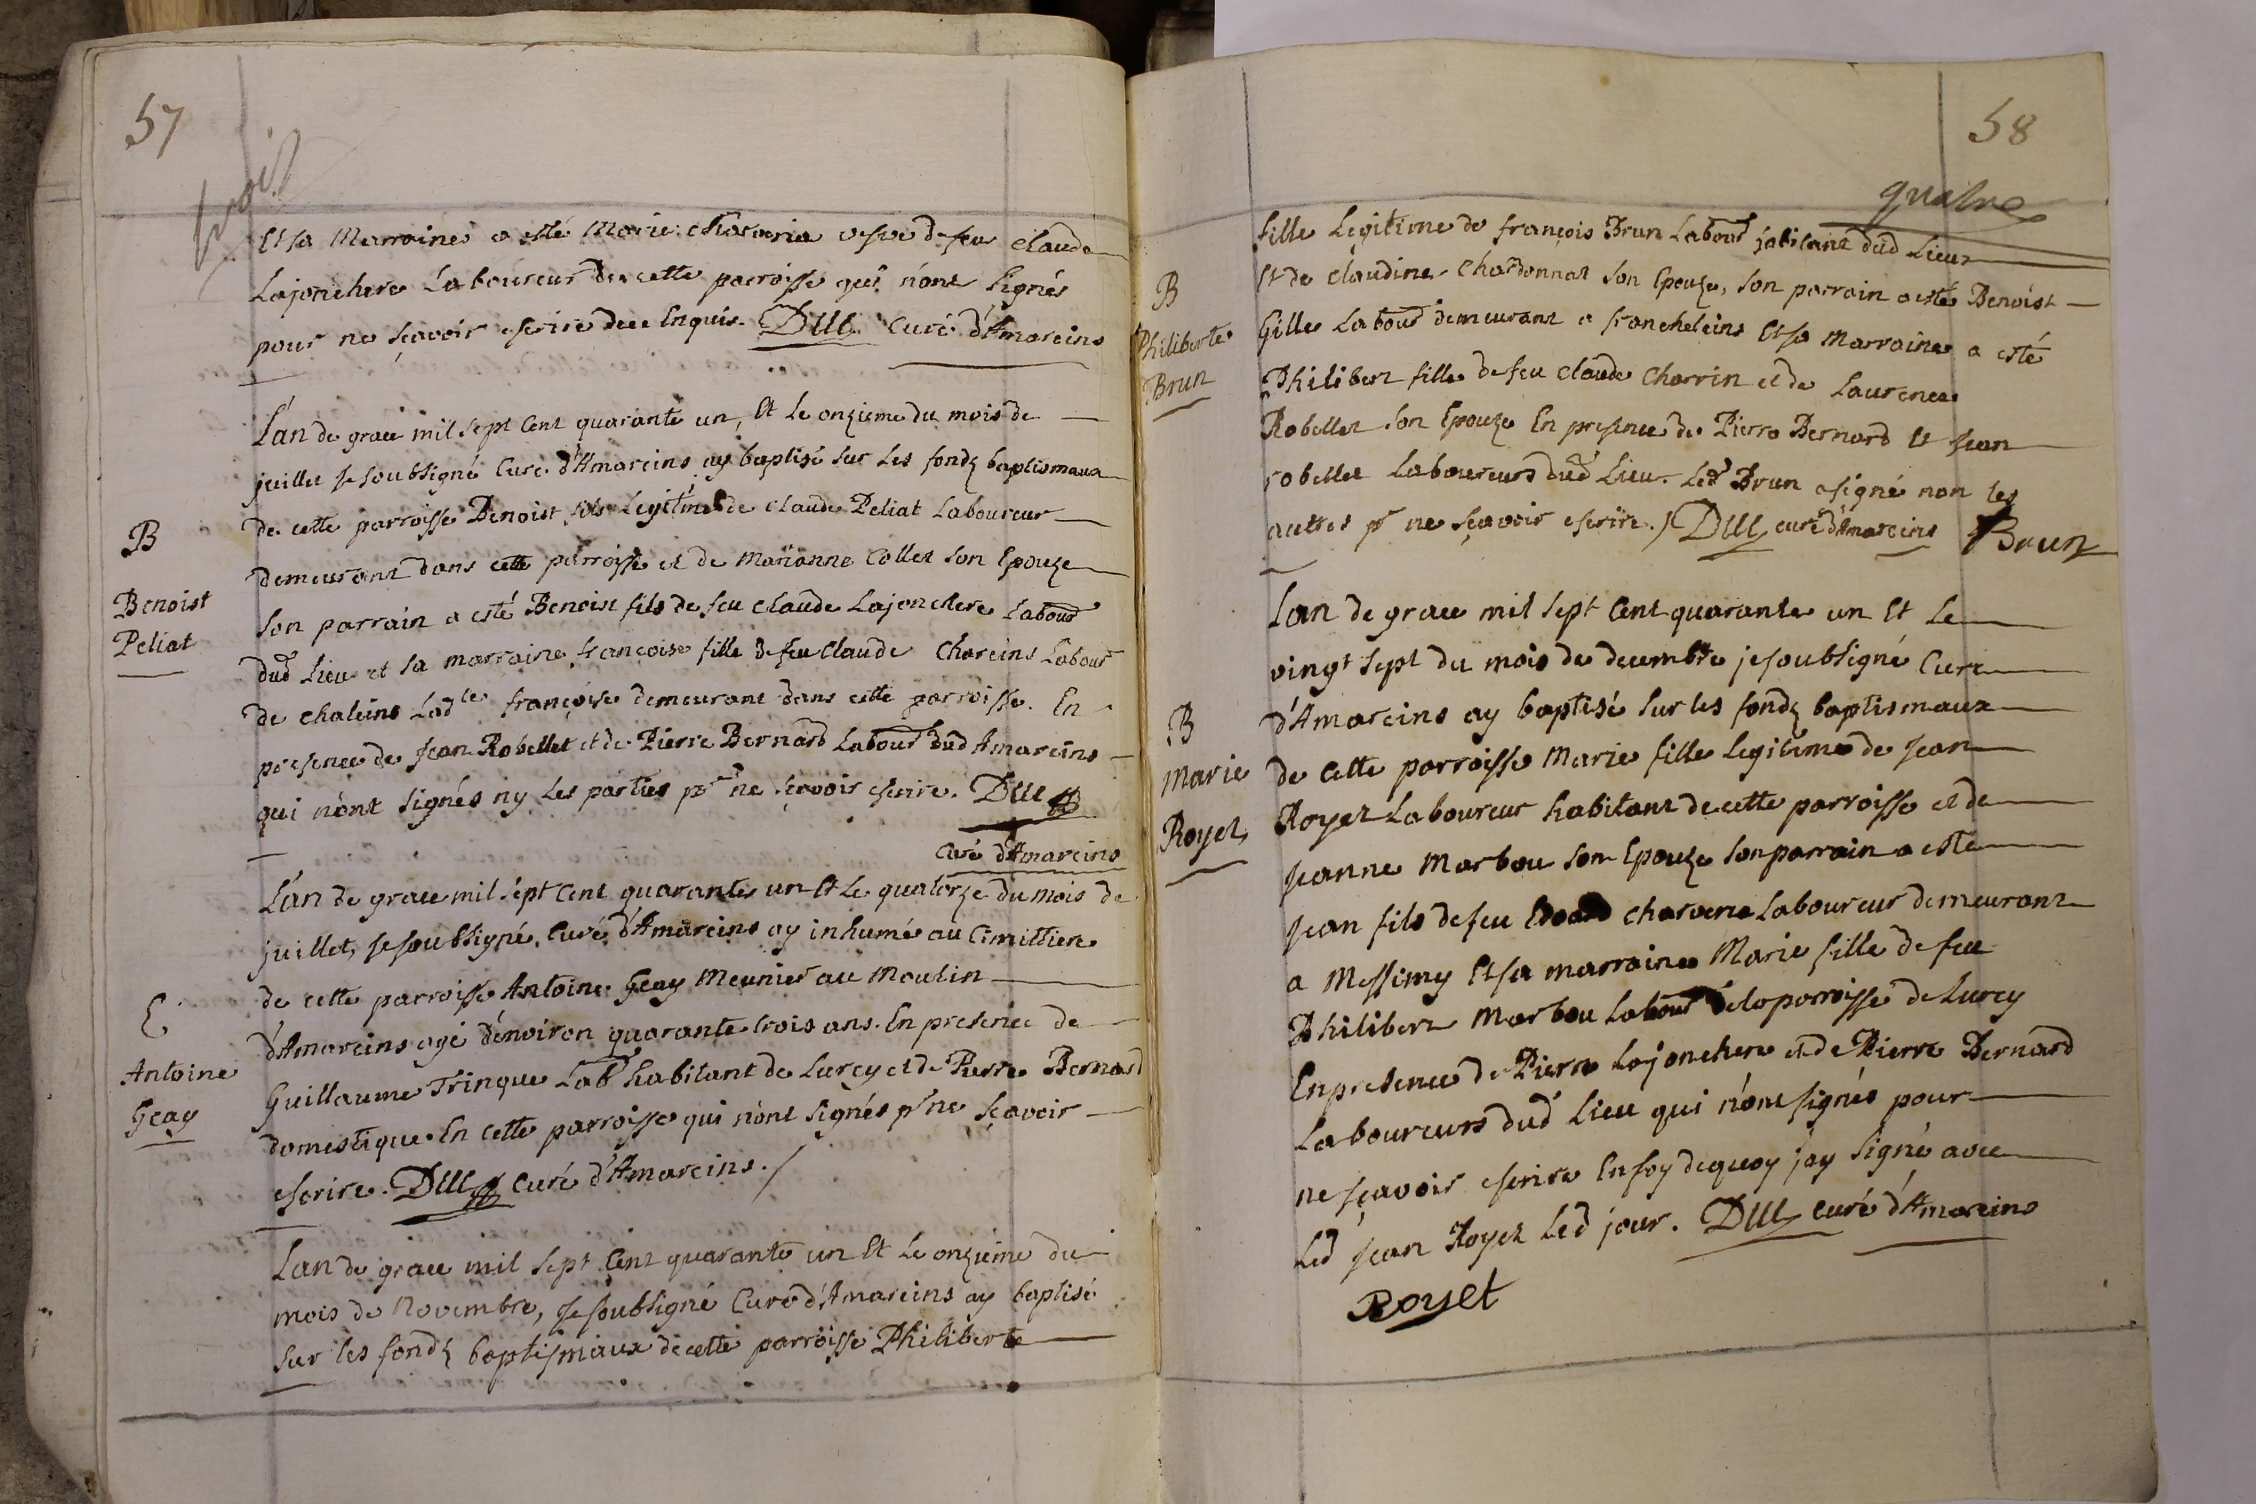 57
trois
Et sa Marraine a esté Marie Charveria vefve de feu Claude
Lajonchere Laboureur de cette parroisse qui n'ont signés
pour ne sçavoir escrire de ce Enquis. Curé d'Amareins
L'an de grace mil sept Cent quarante un, Et le onzieme du mois de
juillet Je soubsigné Curé d'Amareins ay baptisé sur Les fonds baptismaux
B
de cette parroisse Benoist fils Legitime de Claude Peliat Laboureur
demeurant dans cette parroisse et de Marianne Collet son Epouze
Benoist
Peliat
son parrain a esté Benoist fils de feu Claude Lajonchere Labour
dud Lieu et sa marraine françoise fille de feu Claude Chareins Labour
de Chaleins Lad.te françoise demeurant dans cette parroisse. En
presence de Jean Robellet et de Pierre Bernard Labour dud Amareins
qui n'ont signés ny Les parties pr ne sçavoir escrire.
Curé d'Amareins
L'an de grace mil sept Cent quarante un Et Le quatorze du mois de
juillet, Je soubsigné, Curé d'Amareins ay inhumé au Cimittiere
de cette parroisse Antoine Geay Meunier au Moulin
E
Antoine
Geay
d'Amareins agé d'environ quarante trois ans. En presence de
Guillaume Trinque Labr habitant de Lurcy et de Pierre Bernard
domestique En cette parroisse qui n'ont signés pr ne sçavoir
escrire. Curé d'Amareins.
Lan de grace mil sept Cent quarante un Et Le onzieme du
mois de Novembre, Je soubsigné Curé d'Amareins ay baptisé
sur les fonds baptismaux de cette parroisse Philiberte
58
quatre
fille Legitime de françois Brun Labour jabitant dud Lieu
Et de Claudine Chardonnat son Epouze, son parrain a esté Benoist
B
Philiberte
Brun
Gilles Labour demeurant a francheleins Et sa Marraine a esté
Philibert fille de feu Claude Charrin et de Laurence
Robellet son Epouze En presence de Pierre Bernard Et Jean
robellet Laboureurs dud Lieu. Led Brun a signé non les
autres pr ne sçavoir escrire. curé d'Amareins Brun
Lan de grace mil sept Cent quarante un Et Le
vingt sept du mois de decembre je soubsigné Curé
d'Amareins ay baptisé sur les fonds baptismaux
B
Marie
Royet
de cette parroisse Marie fille legitime de Jean
Royet Laboureur habitant de cette parroisse et de
Jeanne Marbou son Epouze son parrain a esté
Jean fils de feu Charveria Laboureur demeurant
a Messimy Et sa marraine Marie fille de feu
Philibert Marbou Labour de la parroisse de Lurcy
En presence de Pierre Lajonchere et de Pierre Bernard
Laboureurs dud Lieu qui n'ont signés pour
ne sçavoir escrire En foy de quoy j'ay signé avec
Led Jean Royet Led jour. curé d'Amareins
Royet